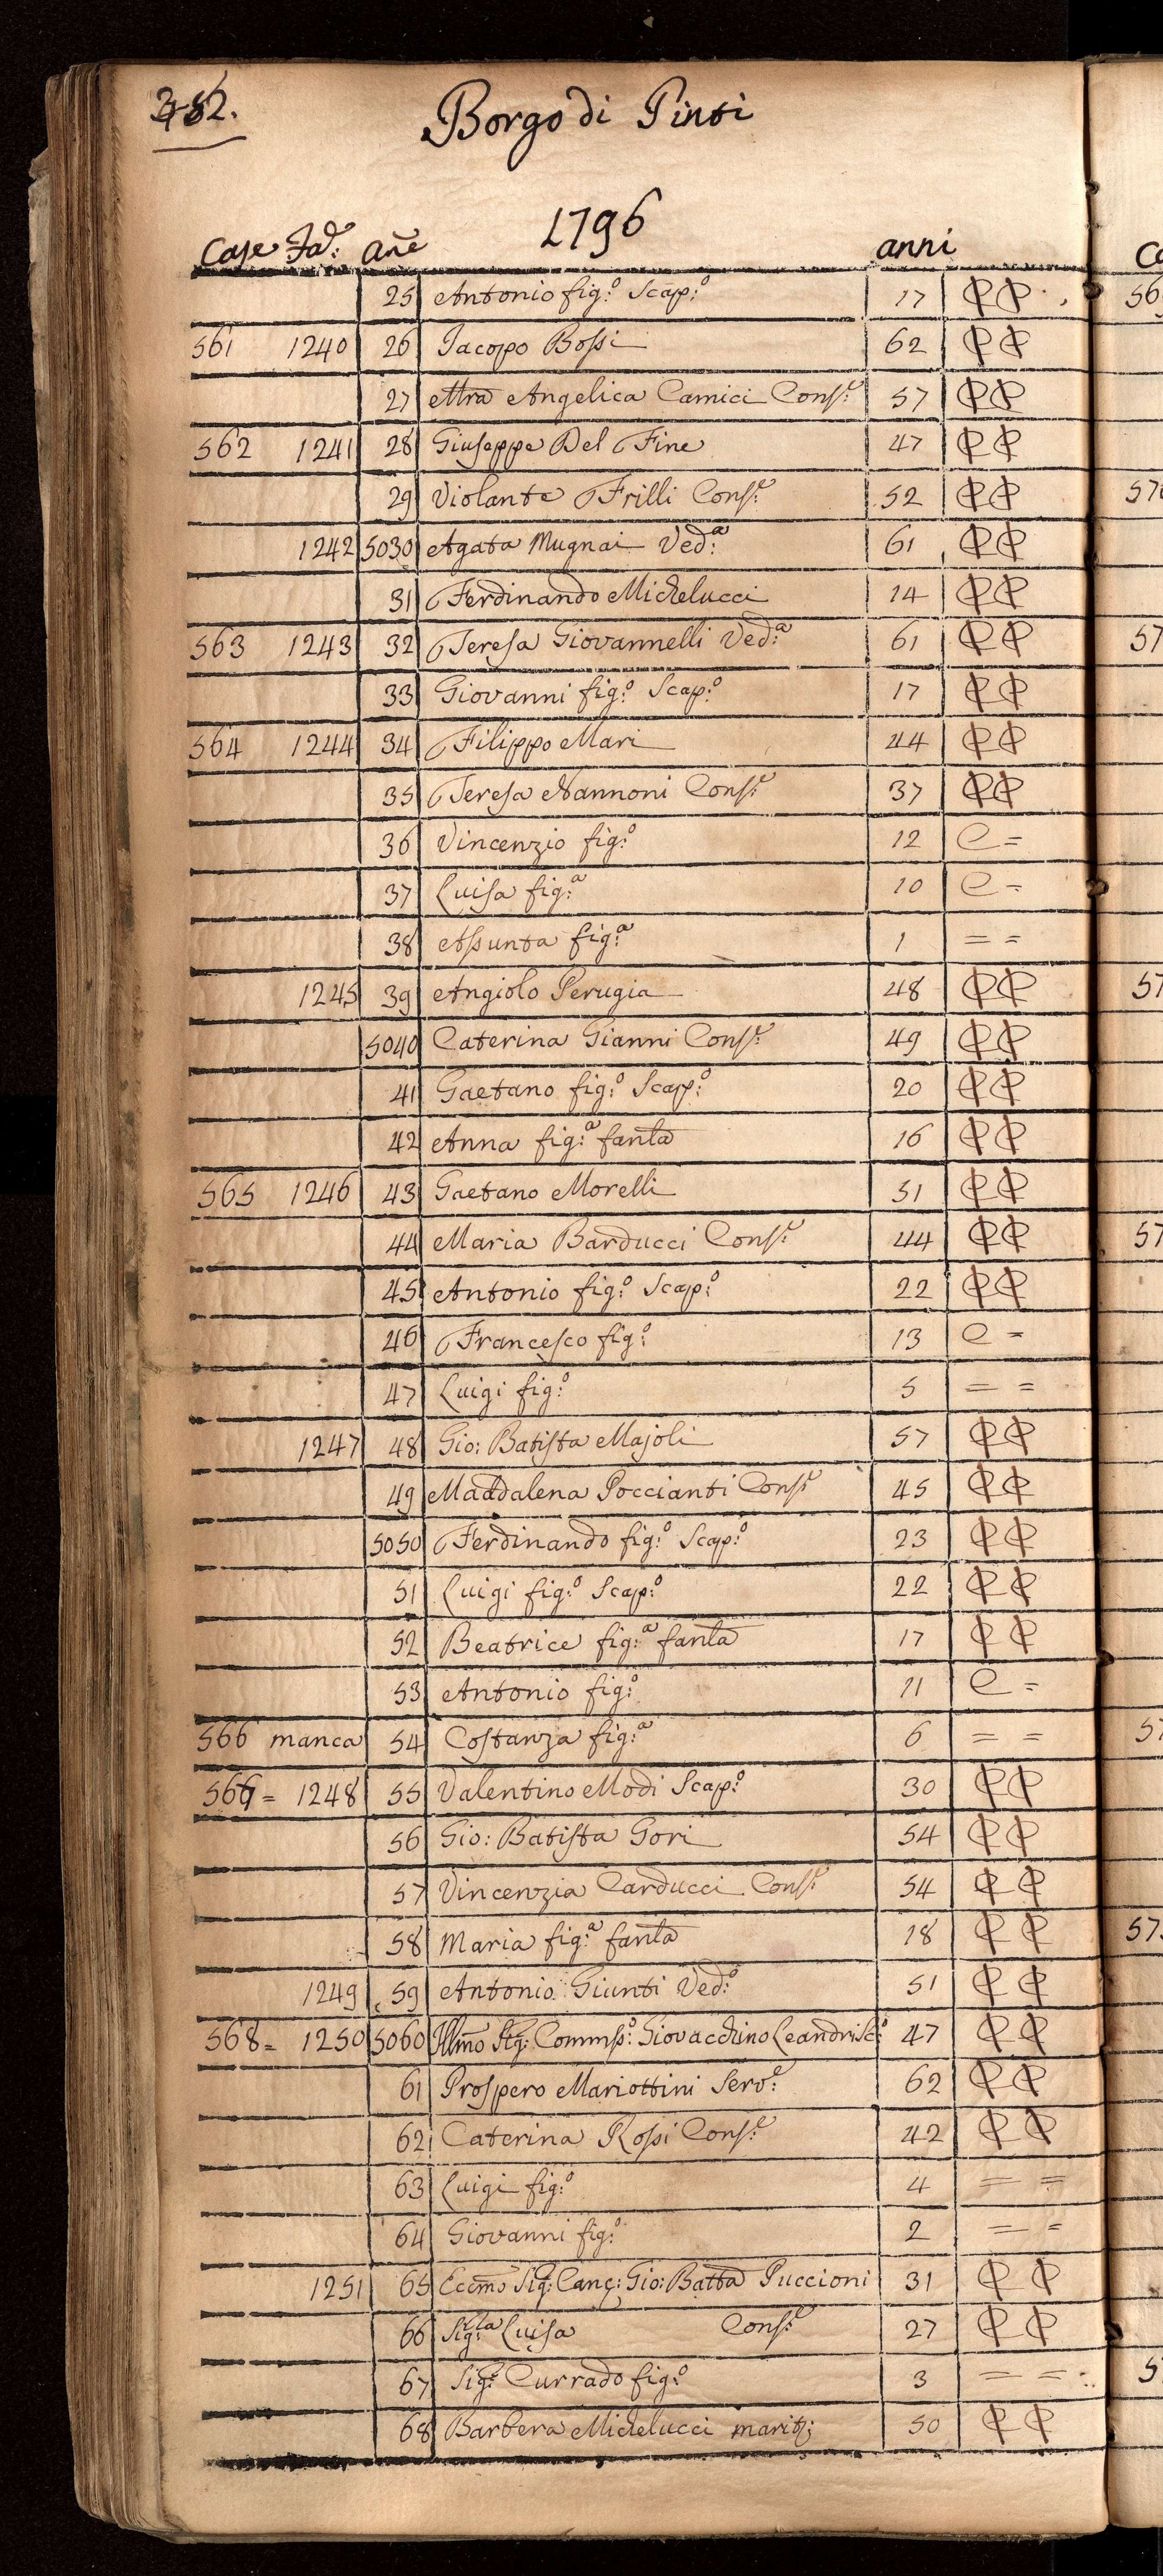 Borgo di Pinti
1796
Case Fa.e Añe anni
25 Antonio fig:o Scap:o 17 ₵₵
561 1240 26 Jacopo Bossi 62 ₵₵
27 Mra Angelica Camici Cons:e 57 ₵₵
562 1241 28 Giuseppe Del Fine 47 ₵₵
29 Violante Frilli Cons:e 52 ₵₵
1242 5030 Agata Mugnai Ved:a 61 ₵₵
31 Ferdinando Michelucci 14 ₵₵
563 1243 32 Teresa Giovannelli Ved:a 61 ₵₵
33 Giovanni fig:o Scap:o 17 ₵₵
564 1244 34 Filippo Mari 44 ₵₵
35 Teresa Nannoni Cons:e 37 ₵₵
36 Vincenzio fig:o 12 C =
37 Luisa fig:a 10 C =
38 Assunta fig:a 1 = =
1245 39 Angiolo Perugia 48 ₵₵
5040 Caterina Gianni Cons:e 49 ₵₵
41 Gaetano fig:o Scap:o 20 ₵₵
42 Anna fig:a fanla 16 ₵₵
565 1246 43 Gaetano Morelli 51 ₵₵
44 Maria Barducci Cons:e 44 ₵₵
45 Antonio fig:o Scap:o 22 ₵₵
46 Francesco fig:o 13 C =
47 Luigi fig:o 5 = =
1247 48 Gio: Batista Majoli 57 ₵₵
49 Maddalena Poccianti Cons:e 45 ₵₵
5050 Ferdinando fig:o Scap:o 23 ₵₵
51 Luigi fig:o Scap:o 22 ₵₵
52 Beatrice fig:a fanla 17 ₵₵
53 Antonio fig:o 11 C =
566 manca 54 Costanza fig:a 6 = =
567 = 1248 55 Valentino Modi Scap:o 30 ₵₵
56 Gio: Batista Gori 54 ₵₵
57 Vincenzia Carducci Cons:e 54 ₵₵
58 Maria fig:a fanla 18 ₵₵
1249 59 Antonio Giunti Ved:o 51 ₵₵
568 = 1250 5060 Illm̃o Sig: Comms:o Giovacchino Leandri Sc:o 47 ₵₵
61 Prospero Mariottini Serv:e 62 ₵₵
62 Caterina Rossi Cons:e 42 ₵₵
63 Luigi fig:o 4 = =
64 Giovanni fig:o 2 = =
1251 65 Eccm̃o Sig: Canc: Gio: Batta Puccioni 31 ₵₵
66 Sig:ra Luisa Cons:e 27 ₵₵
67 Sig: Currado fig:o 3 = =
68 Barbera Michelucci marit: 50 ₵₵